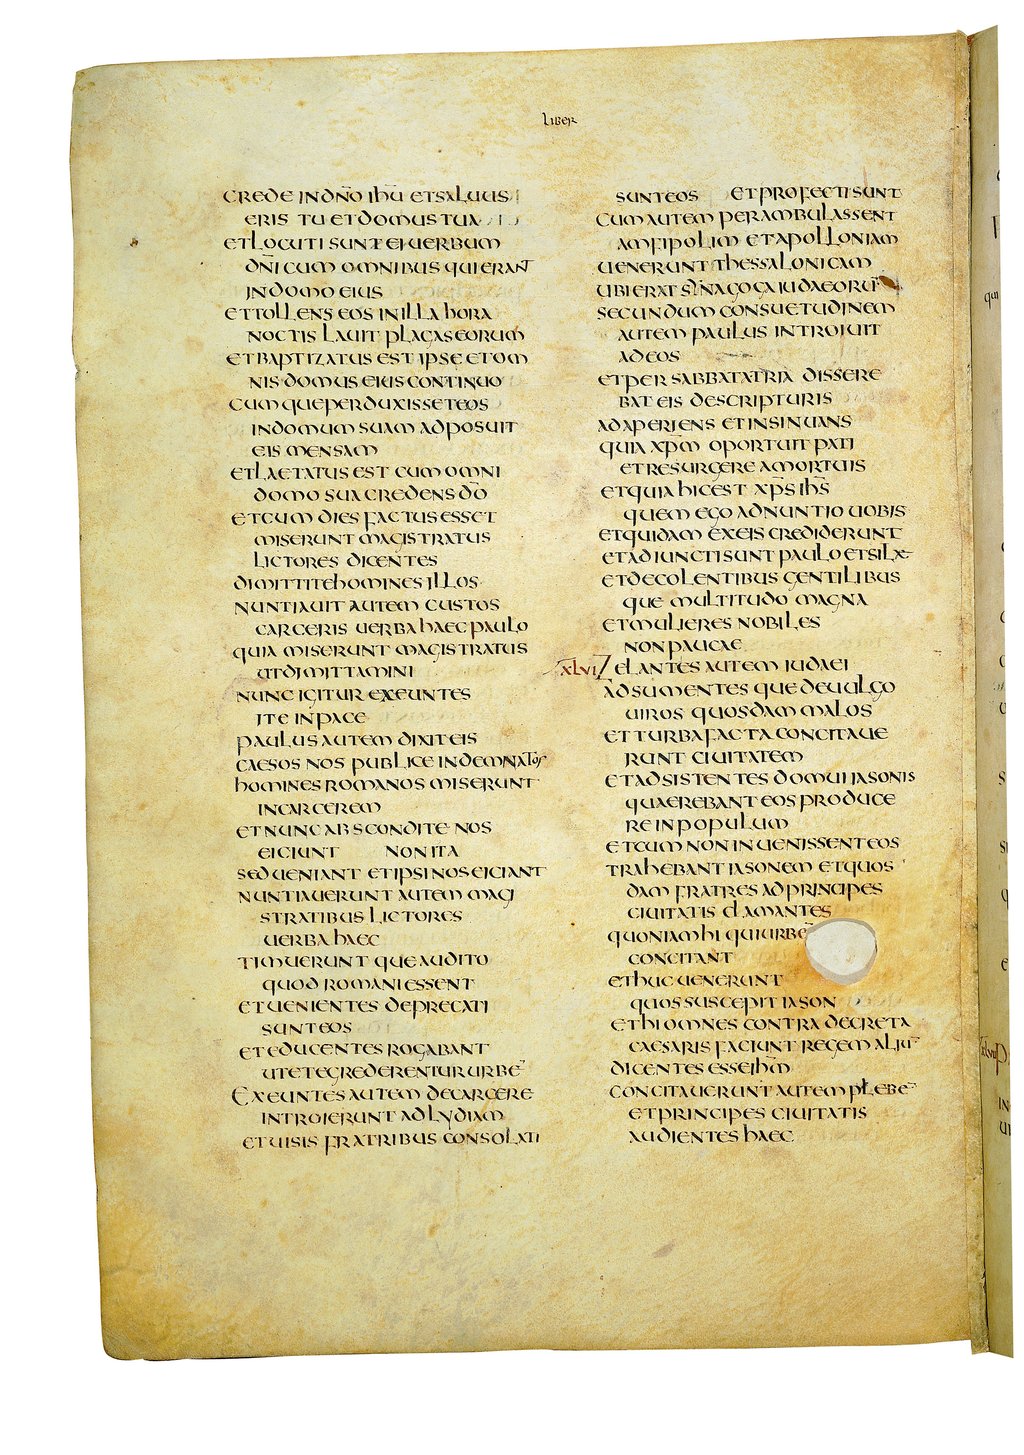 LIBER
CREDE IN DN̄O IHŪ ET SALUUS
ERIS TU ET DOMUS TUA
ET LOCUTI SUNT EI UERBUM
DN̄I CUM OMNIBUS QUI ERANT
IN DOMO EIUS
ET TOLLENS EOS IN ILLA HORA
NOCTIS LAUIT PLAGAS EORUM
ET BAPTIZATUS EST IPSE ET OM
NIS DOMUS EIUS CONTINUO
CUMQUE PERDUXISSET EOS
IN DOMUM SUAM ADPOSUIT
EIS MENSAM
ET LAETATUS EST CUM OMNI
DOMO SUA CREDENS D̄O
ET CUM DIES FACTUS ESSET
MISERUNT MAGISTRATUS
LICTORES DICENTES
DIMITTITE HOMINES ILLOS
NUNTIAUIT AUTEM CUSTOS
CARCERIS UERBA HAEC PAULO
QUIA MISERUNT MAGISTRATUS
UT DIMITTAMINI
NUNC IGITUR EXEUNTES
ITE IN PACE
PAULUS AUTEM DIXIT EIS
CAESOS NOS PUBLICE INDEMNATOS
HOMINES ROMANOS MISERUNT
IN CARCEREM
ET NUNC ABSCONDITE NOS
EICIUNT NON ITA
SED UENIANT ET IPSI NOS EICIANT
NUNTIAUERUNT AUTEM MAGI
STRATIBUS LICTORES
UERBA HAEC
TIMUERUNTQUE AUDITO
QUOD ROMANI ESSENT
ET UENIENTES DEPRECATI
SUNT EOS
ET EDUCENTES ROGABANT
UT EGREDERENTUR URBĒ
EXEUNTES AUTEM DE CARCERE
INTROIERUNT AD LYDIAM
ET UISIS FRATRIBUS CONSOLATI
SUNT EOS ET PROFECTI SUNT
CUM AUTEM PERAMBULASSENT
AMFIPOLIM ET APOLLONIAM
UENERUNT THESSALONICAM
UBI ERAT SYNAGOGA IUDAEORŪ
SECUNDUM CONSUETUDINEM
AUTEM PAULUS INTROIUIT
AD EOS
ET PER SABBATA TRIA DISSERE
BAT EIS DE SCRIPTURIS
ADAPERIENS ET INSINUANS
QUIA XP̄M OPORTUIT PATI
ET RESURGERE A MORTUIS
ET QUIA HIC EST XP̄S IHS̄
QUEM EGO ADNUNTIO UOBIS
ET QUIDAM EX EIS CREDIDERUNT
ET ADIUNCTI SUNT PAULO ET SILAE
ET DE COLENTIBUS GENTILIBUS
QUE MULTITUDO MAGNA
ET MULIERES NOBILES
NON PAUCAE
XLVI ZELANTES AUTEM IUDAEI
ADSUMENTESQUE DE UULGO
UIROS QUOSDAM MALOS
ET TURBA FACTA CONCITAUE
RUNT CIUITATEM
ET ADSISTENTES DOMUI IASONIS
QUAEREBANT EOS PRODUCE
RE IN POPULUM
ET CUM NON INUENISSENT EOS
TRAHEBANT IASONEM ET QUOS
DAM FRATRES AD PRINCIPES
CIUITATIS CLAMANTES
QUONIAM HI QUI URBĒ
CONCITANT
ET HUC UENERUNT
QUOS SUSCEPIT IASON
ET HI OMNES CONTRA DECRETA
CAESARIS FACIUNT REGEM ALIŪ
DICENTES ESSE IHM̄
CONCITAUERUNT AUTEM PLEBĒ
ET PRINCIPES CIUITATIS
AUDIENTES HAEC